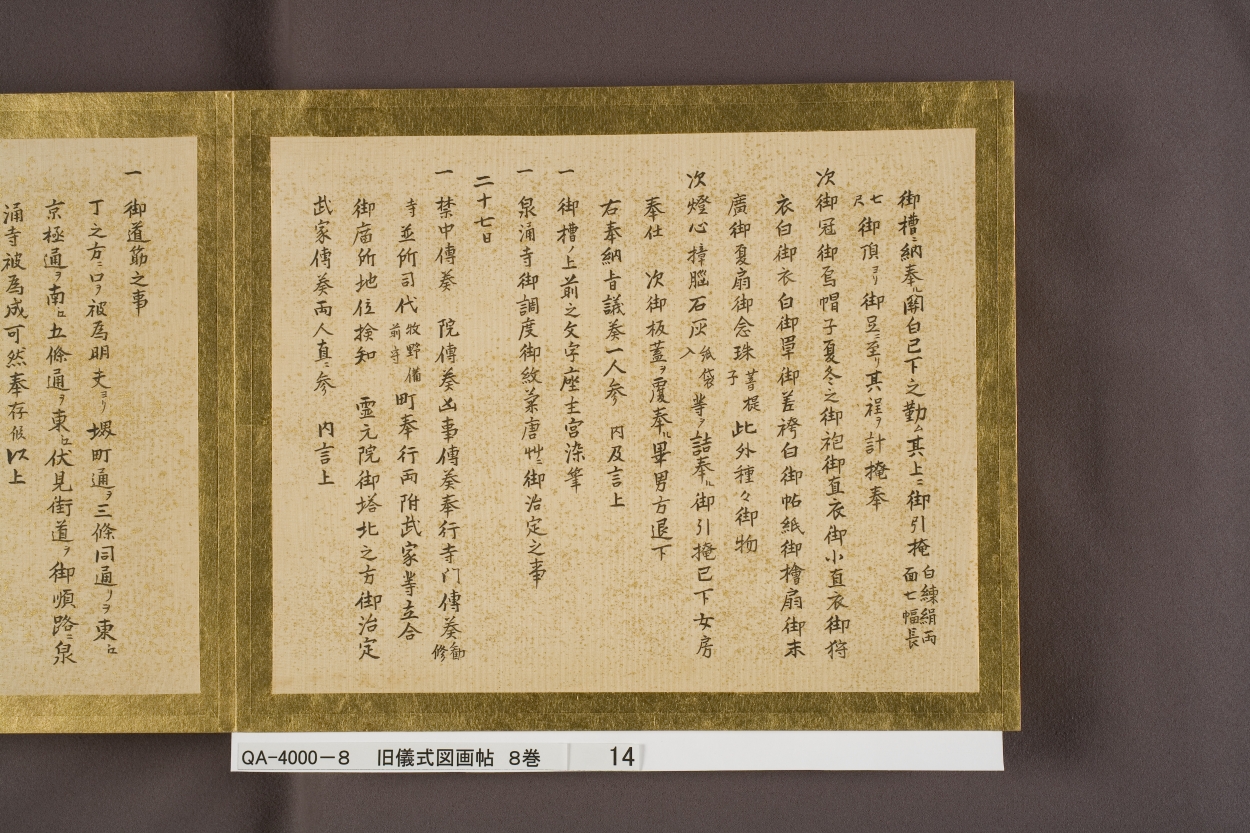 御槽ニ納奉ル関白已下之勤ム其上ニ御引掩白練絹両面七幅長
七尺御頂ヨリ御足ニ至リ其程ヲ計掩奉
次御冠御烏帽子夏冬之御袍御直衣御小直衣御狩
衣白御衣白御単御差袴白御帖紙御檜扇御末
廣御夏扇御念珠菩提子此外種々御物
次燈心樟脳石灰紙袋入等ヲ詰奉ル御引掩已下女房
奉仕 次御板蓋ヲ覆奉ル畢男方退下
右奉納旨議奏一人参 内及言上
一 御槽ノ上前之文字座主宮染筆
一 泉涌寺御調度御紋菊唐艸ニ御治定之事
二十七日
一 禁中傳奏 院傳奏凶事傳奏奉行寺門傳奏勧修
寺並所司代牧野備前守町奉行両附武家等立合
御廟所地位検知 霊元院御塔北之方御治定
武家傳奏両人直ニ参 内言上
一 御道筋之事
丁之方ニ口ヲ被為明夫ヨリ堺町通ヲ三條同通リヲ東江
京極通ヲ南江五條通ヲ東江伏見街道ヲ御順路ニ泉
涌寺被為成可然奉存候以上
QA-4000-8 旧儀式図画帖 8巻 14